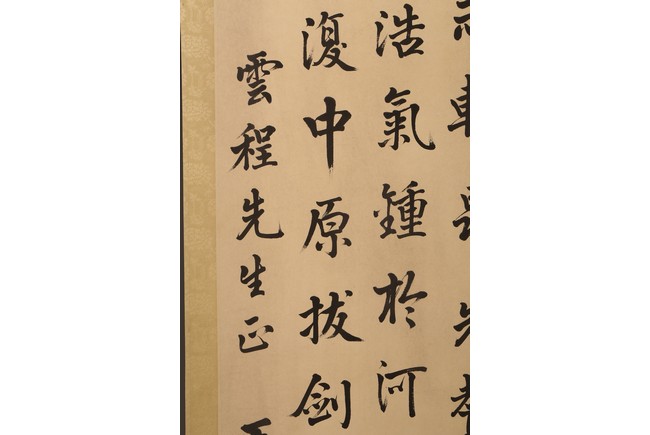 浩氣鍾於河
復中原拔劍
雲程先生正